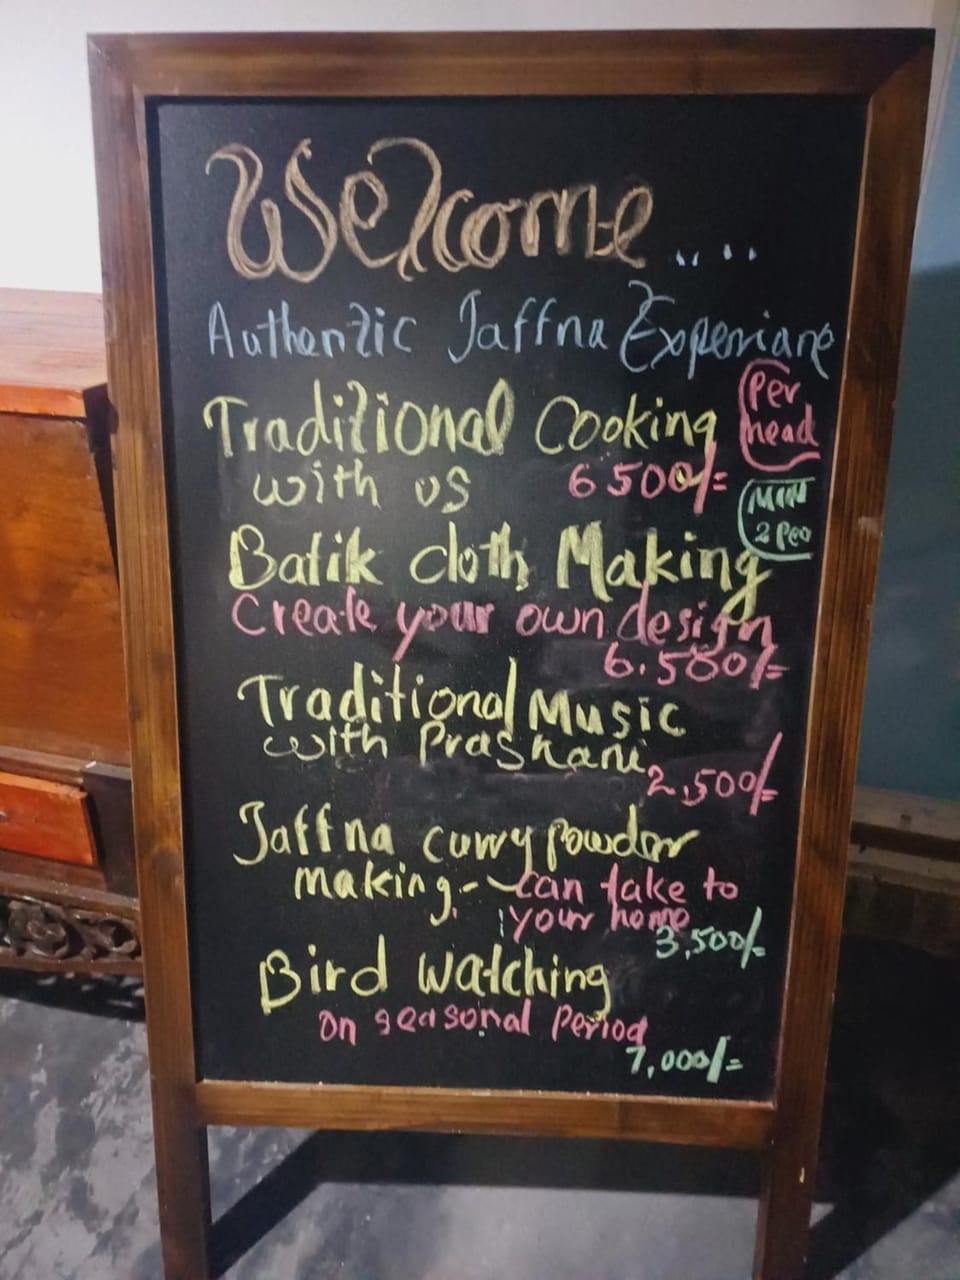 Welcome....
Authentic Jaffna Experiance
Traditional Cooking
Per
head
with us 6500/=
Min
2 Peo
Batik cloth Making
Create your own design
6.500/=
Traditional Music
with Prashani
2,500/=
Jaffna curry powder
making - can take to
your home
3,500/=
Bird Watching
on seasonal Period
7,000/=